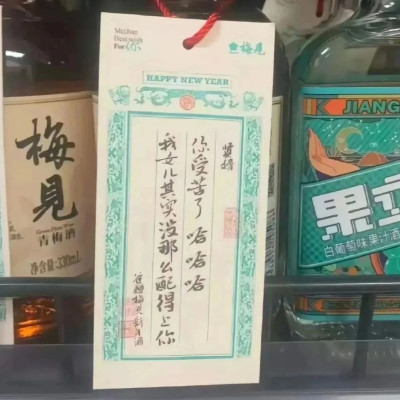 Meijian
For 你
梅見
HAPPY NEW YEAR
贤婿
你受苦了 哈哈哈
我女儿其实没那么配得上你
梅見
青梅酒
净含量:330mL
JIANG
果立
白葡萄味果汁酒